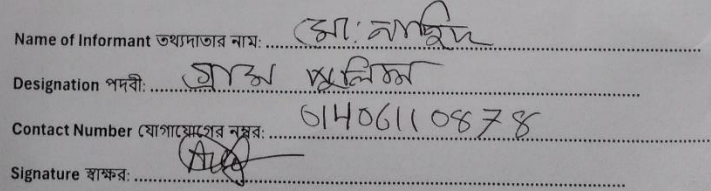 Name of Informant তথ্যদাতার নাম: মো: নাহিদ
Designation পদবী: গ্রাম পুলিশ
Contact Number যোগাযোগের নম্বর: 01406110878
Signature স্বাক্ষর: